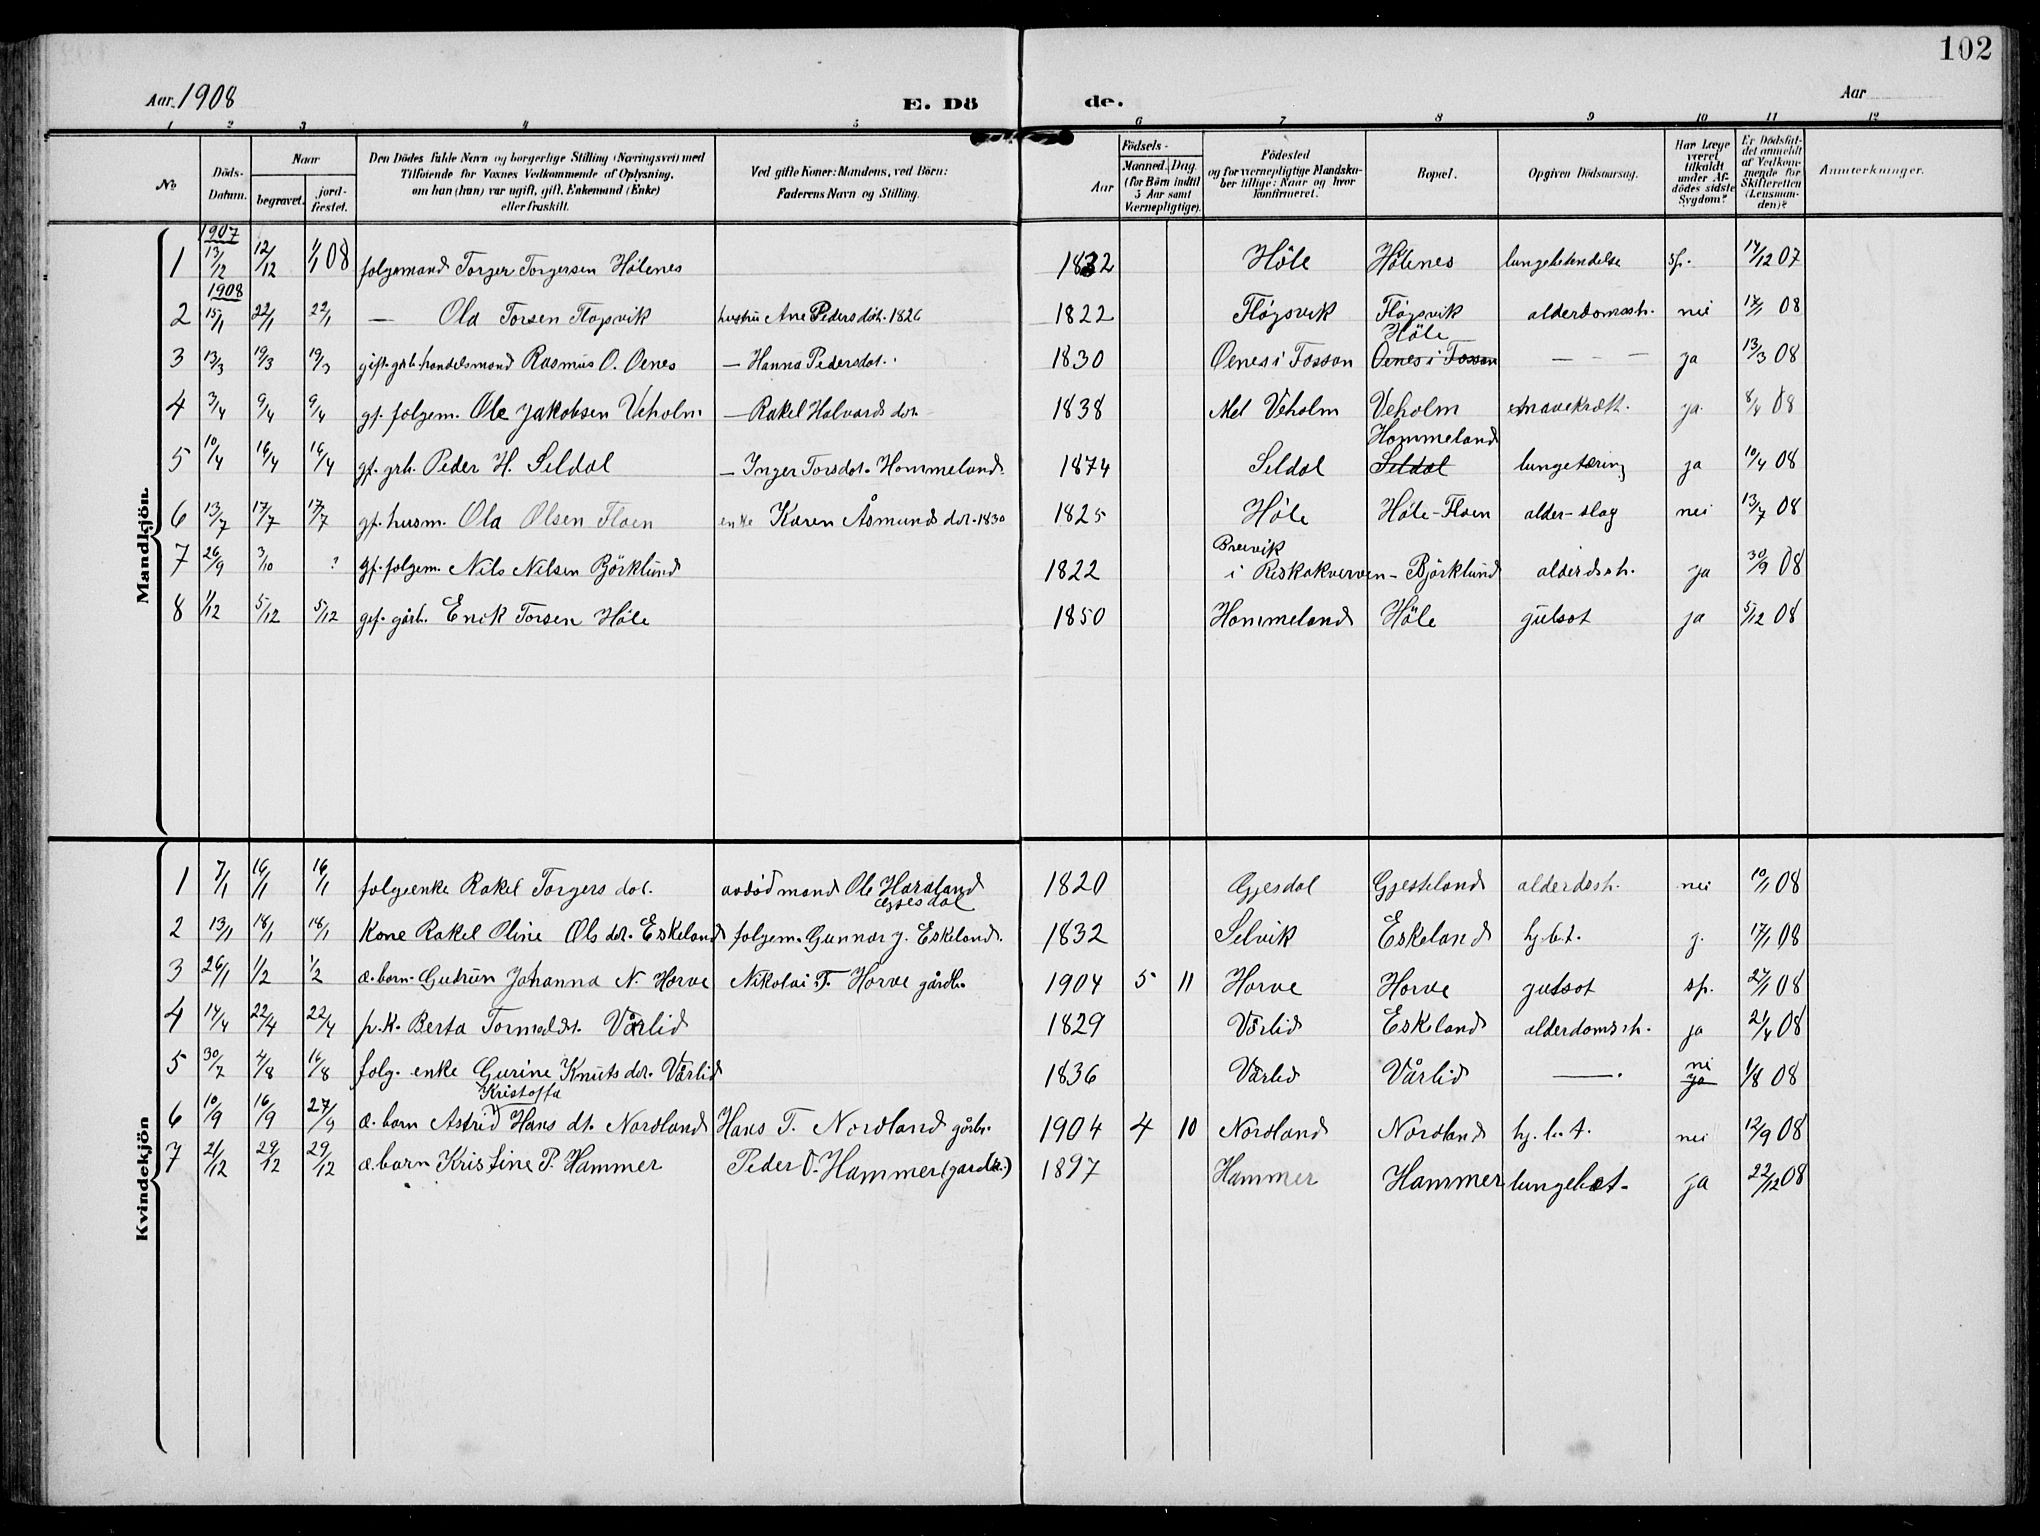 102
Aar 1908
E. Dö de.
Aar
1 2 3 4 5 6 7 8 9 10 11 12
No
Döds-Datum.
Naar
begravet.
jordfæstet.
Den Dödes fulde Navn og borgerlige Stilling (Næringsvei) med Tilföiende for Voxnes Vedkommende af Oplysning, om han (hun) var ugift, gift, Enkemand (Enke) eller fraskilt.
Ved gifte Koner: Mandens, ved Börn: Faderens Navn og Stilling.
Födsels-
Aar
Maaned. Dag. (for Börn indtil 5 Aar samt Værnepligtige).
Födested og for værnepligtige Mandskaber tillige: Naar og hvor konfirmeret.
Bopæl.
Opgiven Dödsaarsag.
Har Læge været tilkaldt under Afdödes sidste Sygdom?
Er Dödsfaldet anmeldt af Vedkommende for Skifteretten (Lensmanden)?
Anmærkninger.
Mandkjön.
1 1907 13/12 12/12 1/1 08 folgemand Torger Torgersen Hölenes 1832 Höle Hölenes lungebetendelse sp. 14/12 07
2 1908 15/1 22/1 22/1 — Ola Torsen Flogsvik hustru Ane Pedersdöt. 1826 1822 Flögsvik Flögsvik alderdomssh. nei 17/1 08
3 13/3 19/3 19/3 gift. grb. handelsmand Rasmus O. Oenes — Hanna Pedersdot. 1830 Oenes i Fossan Höle Oenes i Fossan — — — ja 13/3 08
4 3/4 9/4 9/4 gf. folgem. Ole Jakobsen Veholm — Rakel Halvards dot. 1838 Mel Veholm Veholm mavekræft. ja. 8/4 08
5 10/4 16/4 16/4 gf. grb. Peder H. Seldal — Inger Torsdot. Hommeland. 1874 Seldal Hommeland Seldal lungetæring ja 10/4 08
6 13/7 17/7 17/7 gf. husm. Ola Olsen Floen enke Karen Åsmunds dot. 1830 1825 Höle Höle-Floen alder-slag nei 13/7 08
7 26/9 3/10 ? gf. folgem. Nils Nilsen Björklund 1822 Brevik i Riskekverven - Björklund alderdssh. ja 30/9 08
8 1/12 5/12 5/12 gf. gårb. Enok Torsen Höle 1850 Hommeland Höle gulsot ja 5/12 08
Kvindekjön
1 7/1 16/1 16/1 folgeenke Rakel Torgers dot. avdöd mand Ole Haraland Gjesdal 1820 Gjesdal Gjesteland alderdssh. nei 10/1 08
2 13/1 18/1 18/1 Kone Rakel Oline Ols dot. Eskeland folgem. Gunnar J. Eskeland. 1832 Selvik Eskeland hj.b.t. j. 17/1 08
3 26/1 1/2 1/2 æ. barn. Gudrun Johanna N. Horve Nikolai T. Horve gårdb. 1904 5 11 Horve Horve gulsot sp. 27/1 08
4 14/4 22/4 22/4 p.k. Berta Tormoddt. Vårlid 1829 Vårlid Eskeland alderdomssh. ja 21/4 08
5 30/7 4/8 16/8 folg. enke Gurine Knuts dot. Vårlid 1836 Vårlid Vårlid —. nei ja 1/8 08
6 10/9 16/9 27/9 æ. barn Astrid Kristoffa Hans dt. Nordland Hans T. Nordland gårbr. 1904 4 10 Nordland Nordland hj.b.t. nei 12/9 08
7 21/12 29/12 29/12 æ. barn Kristine P. Hammer Peder O. Hammer (gardbr.) 1897 Hammer Hammer lungebet. ja 22/12 08